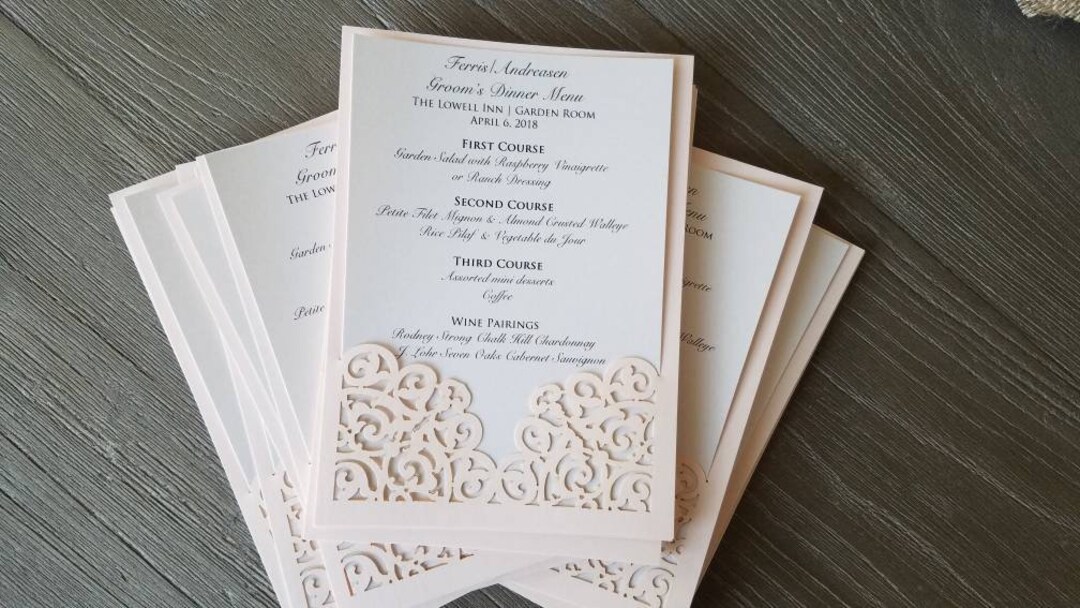 Ferris/Andreasen
Groom's Dinner Menu
THE LOWELL INN | GARDEN ROOM
APRIL 6, 2018
FIRST COURSE
Garden Salad with Raspberry Vinaigrette
or Ranch Dressing
SECOND COURSE
Petite Filet Mignon & Almond Crusted Walleye
Rice Pilaf & Vegetable du Jour
THIRD COURSE
Assorted mini desserts
Coffee
WINE PAIRINGS
Rodney Strong Chalk Hill Chardonnay
J. Lohr Seven Oaks Cabernet Sauvignon
Ferr
Groon
THE LOW
Garden
Petite
en
enu
ROOM
igrette
Walleye